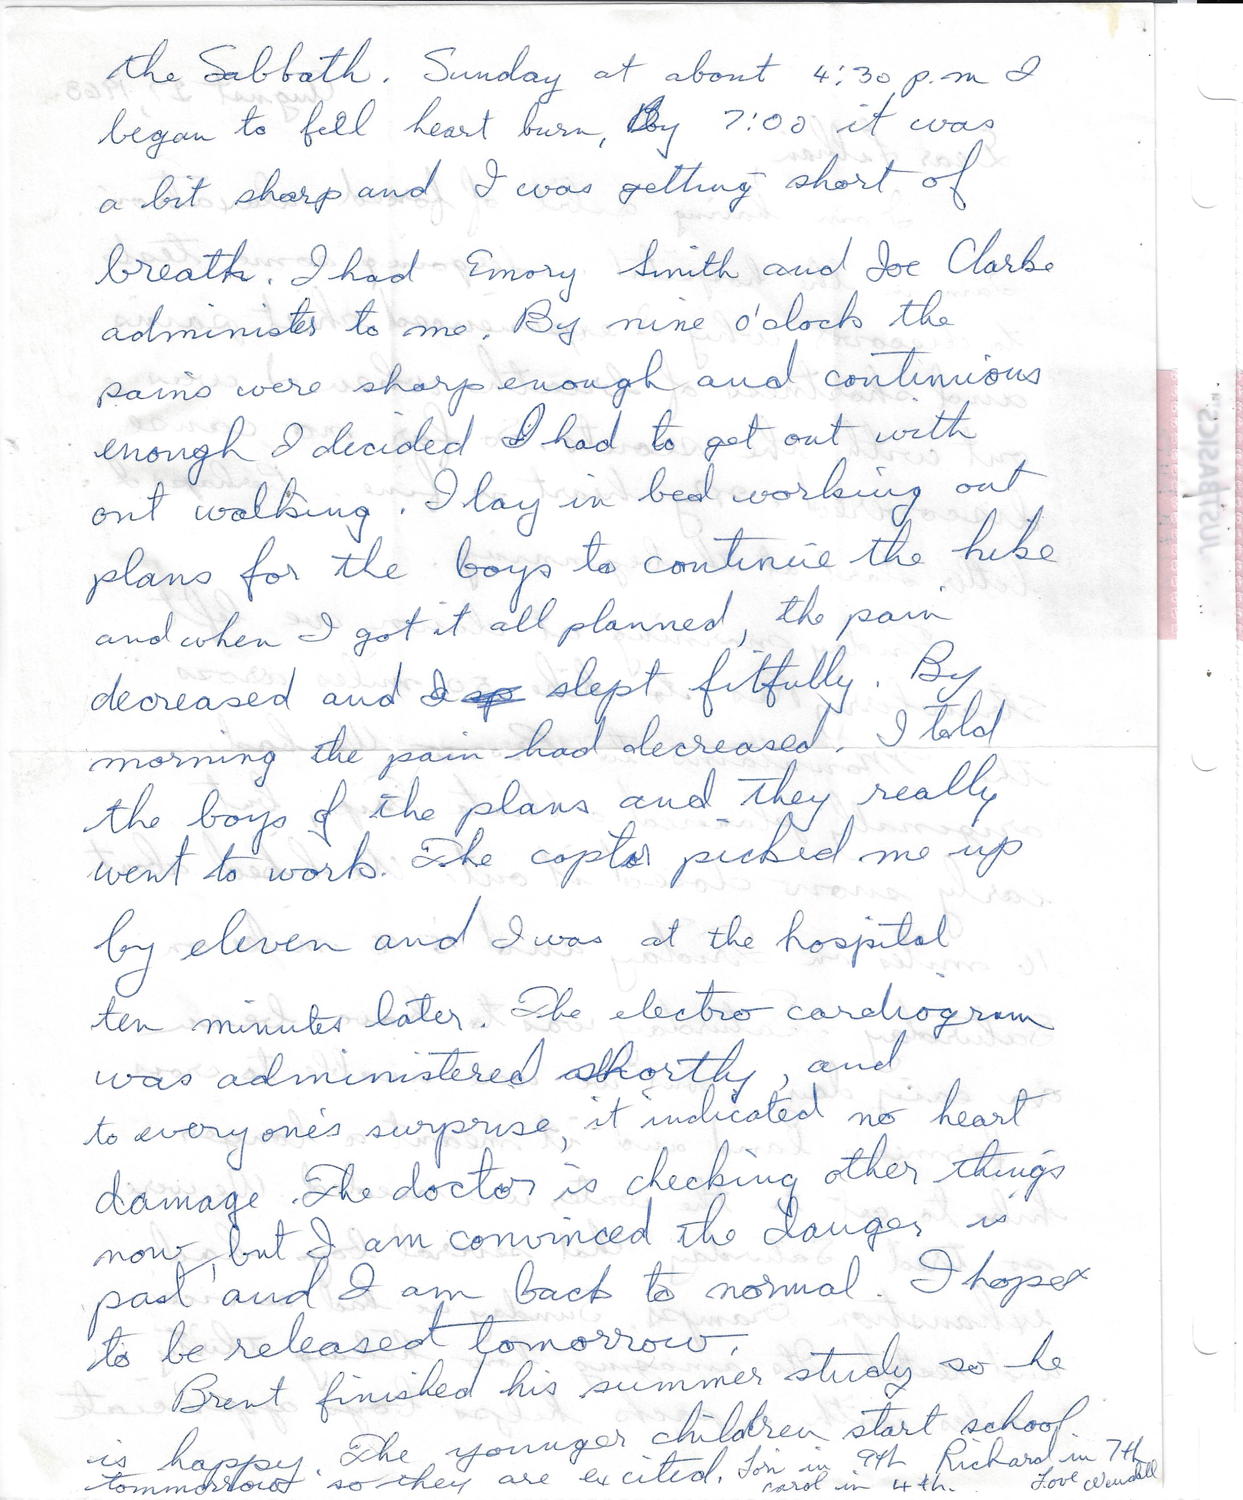 the Sabbath. Sunday at about 4:30 p.m I
began to fell heart burn, By 7:00 it was
a bit sharp and I was getting short of
breath. I had Emory Smith and Joe Clarke
administer to me. By nine o'clock the
pains were sharp enough and continious
enough I decided I had to get out with
out walking. I lay in bed working out
plans for the boys to continue the hike
and when I got it all planned, the pain
decreased and I slept fitfully. By
morning the pain had decreased. I told
the boys of the plans and they really
went to work. The coptor picked me up
by eleven and I was at the hospital
ten minutes later. The electro cardiogram
was administered shortly, and
to everyone's surprise, it indicated no heart
damage. The doctor is checking other things
now, but I am convinced the danger is
past and I am back to normal. I hope
to be released tomorrow.
Brent finished his summer study so he
is happy. The younger children start school
tommorrow so they are excited. Lori in 9th Richard in 7th
carol in 4th. Love Wendell
JUSTBASICS